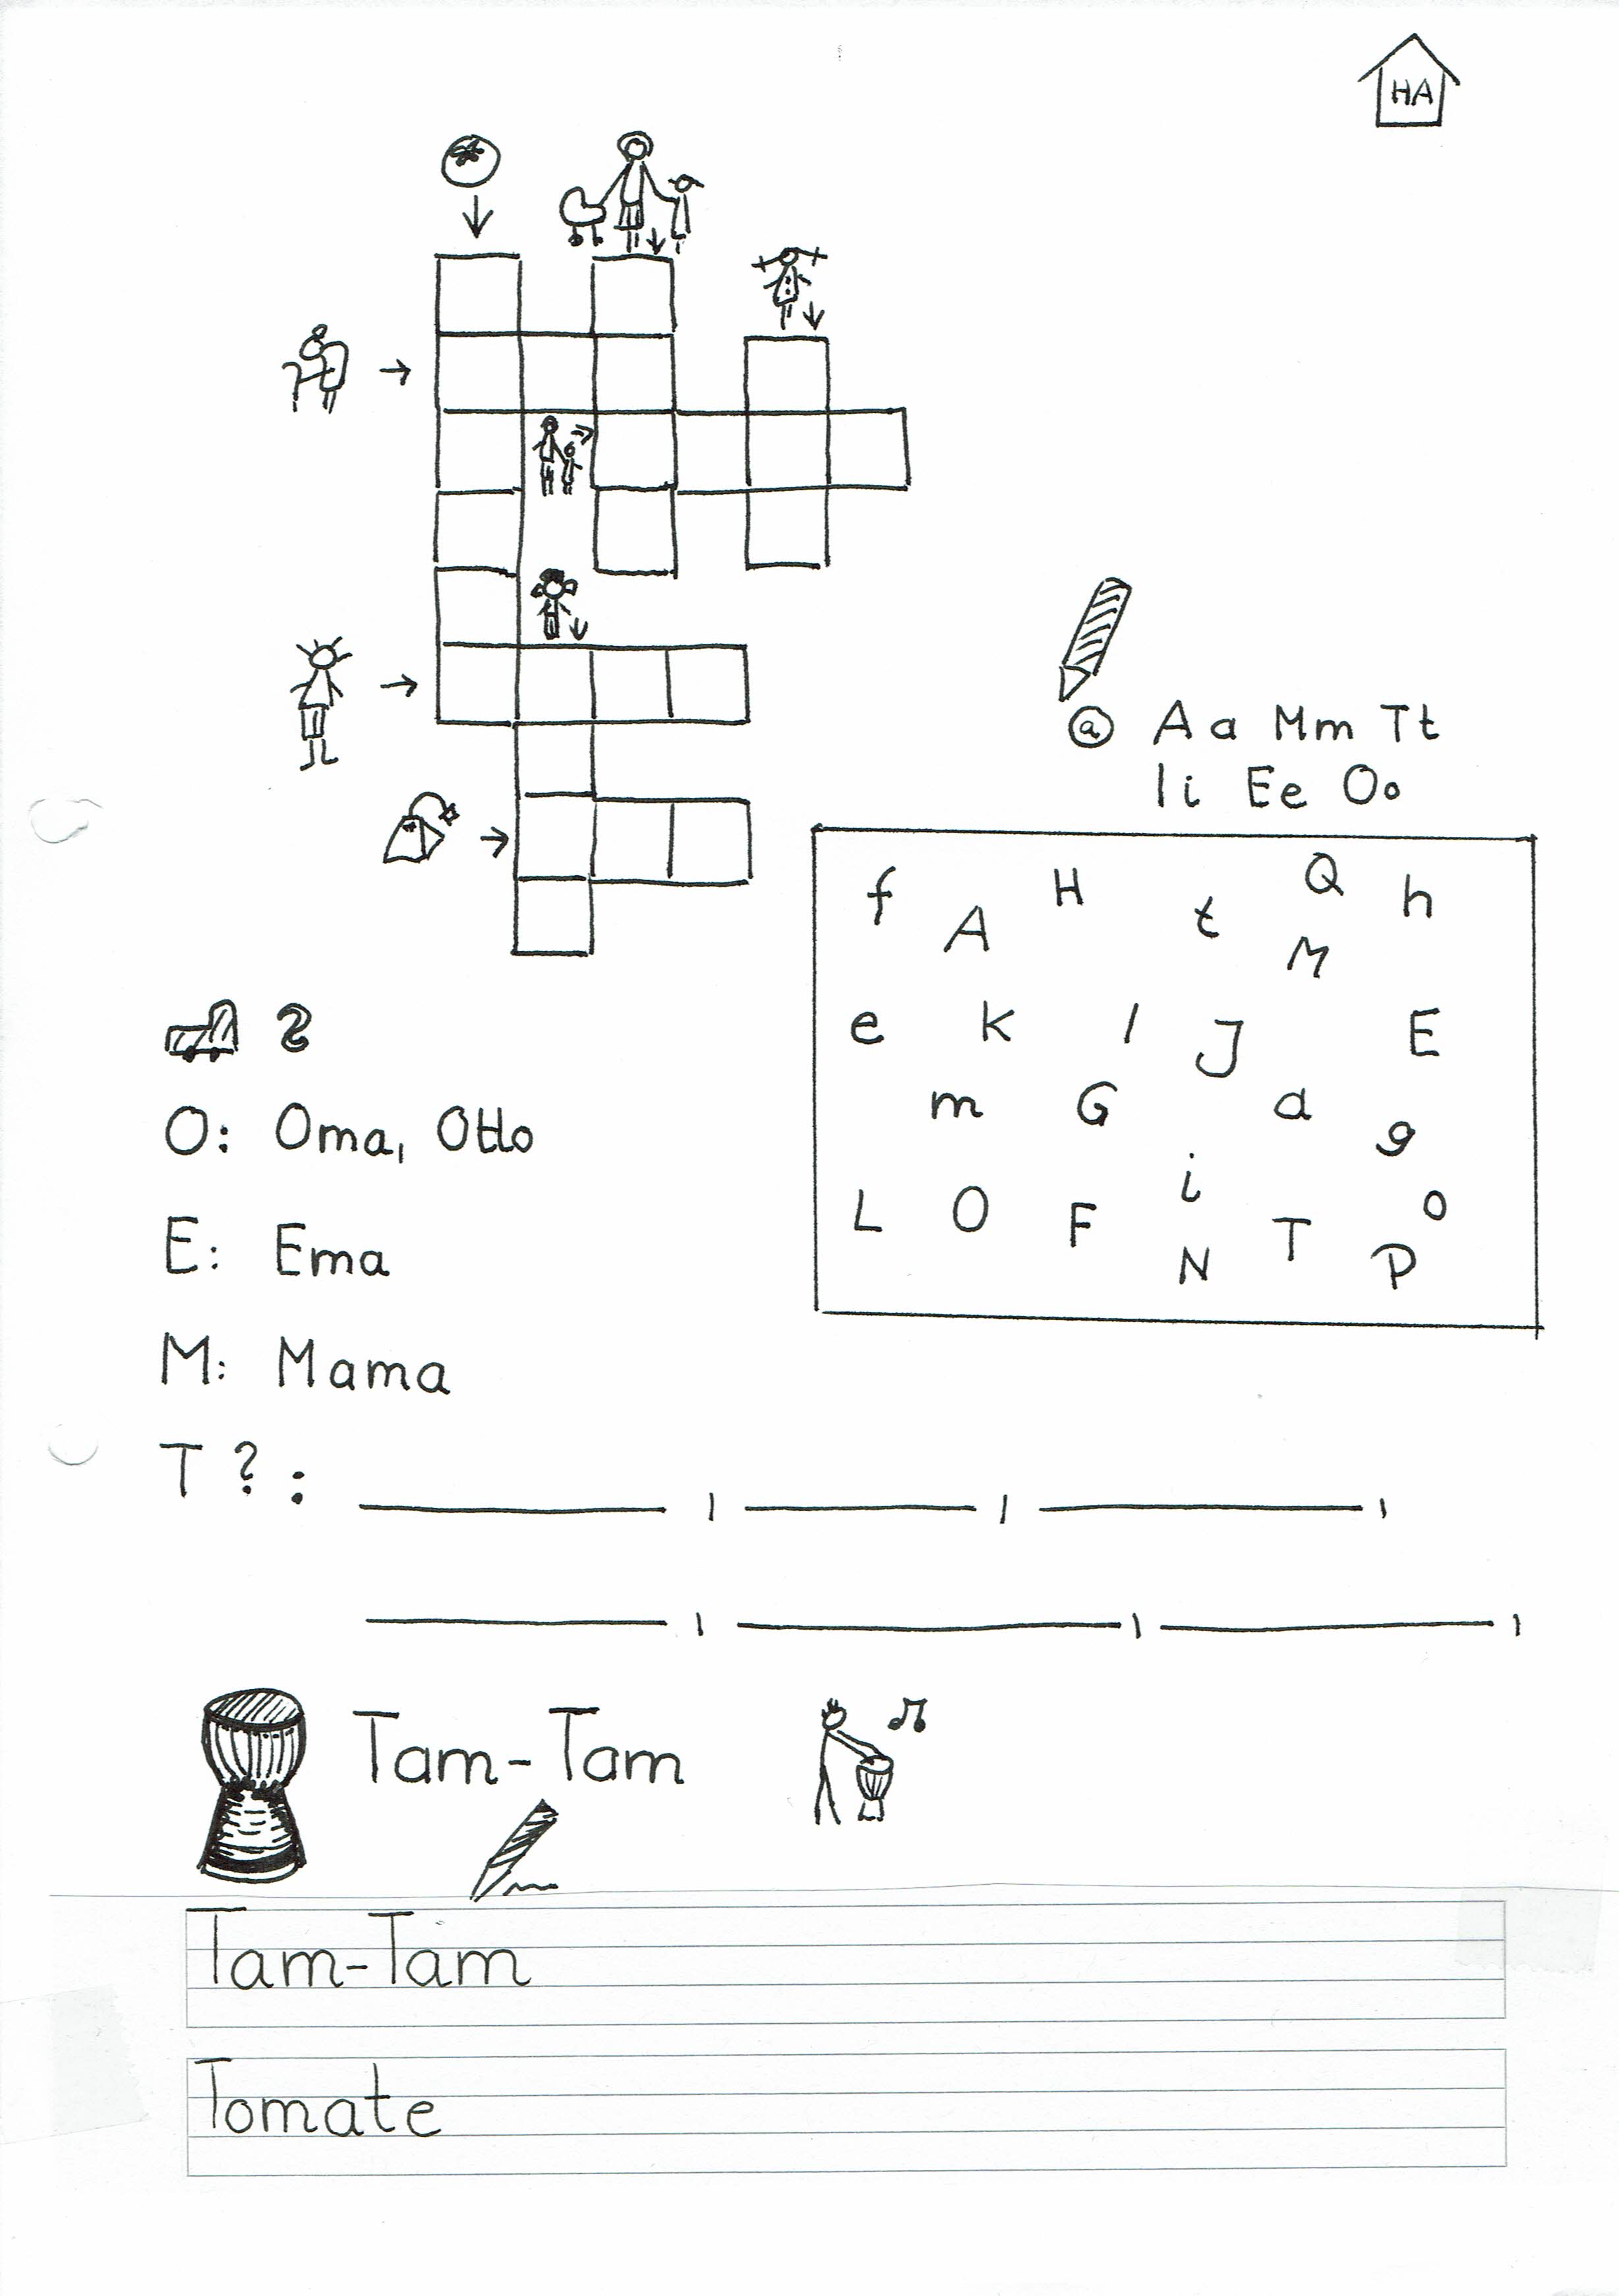 HA
ⓐ Aa Mm Tt
Ii Ee Oo
f A H t Q h
M
e k I J E
m G a g
i
L O F T o
N P
O: Oma, Otto
E: Ema
M: Mama
T ? :
Tam-Tam
Tam-Tam
Tomate